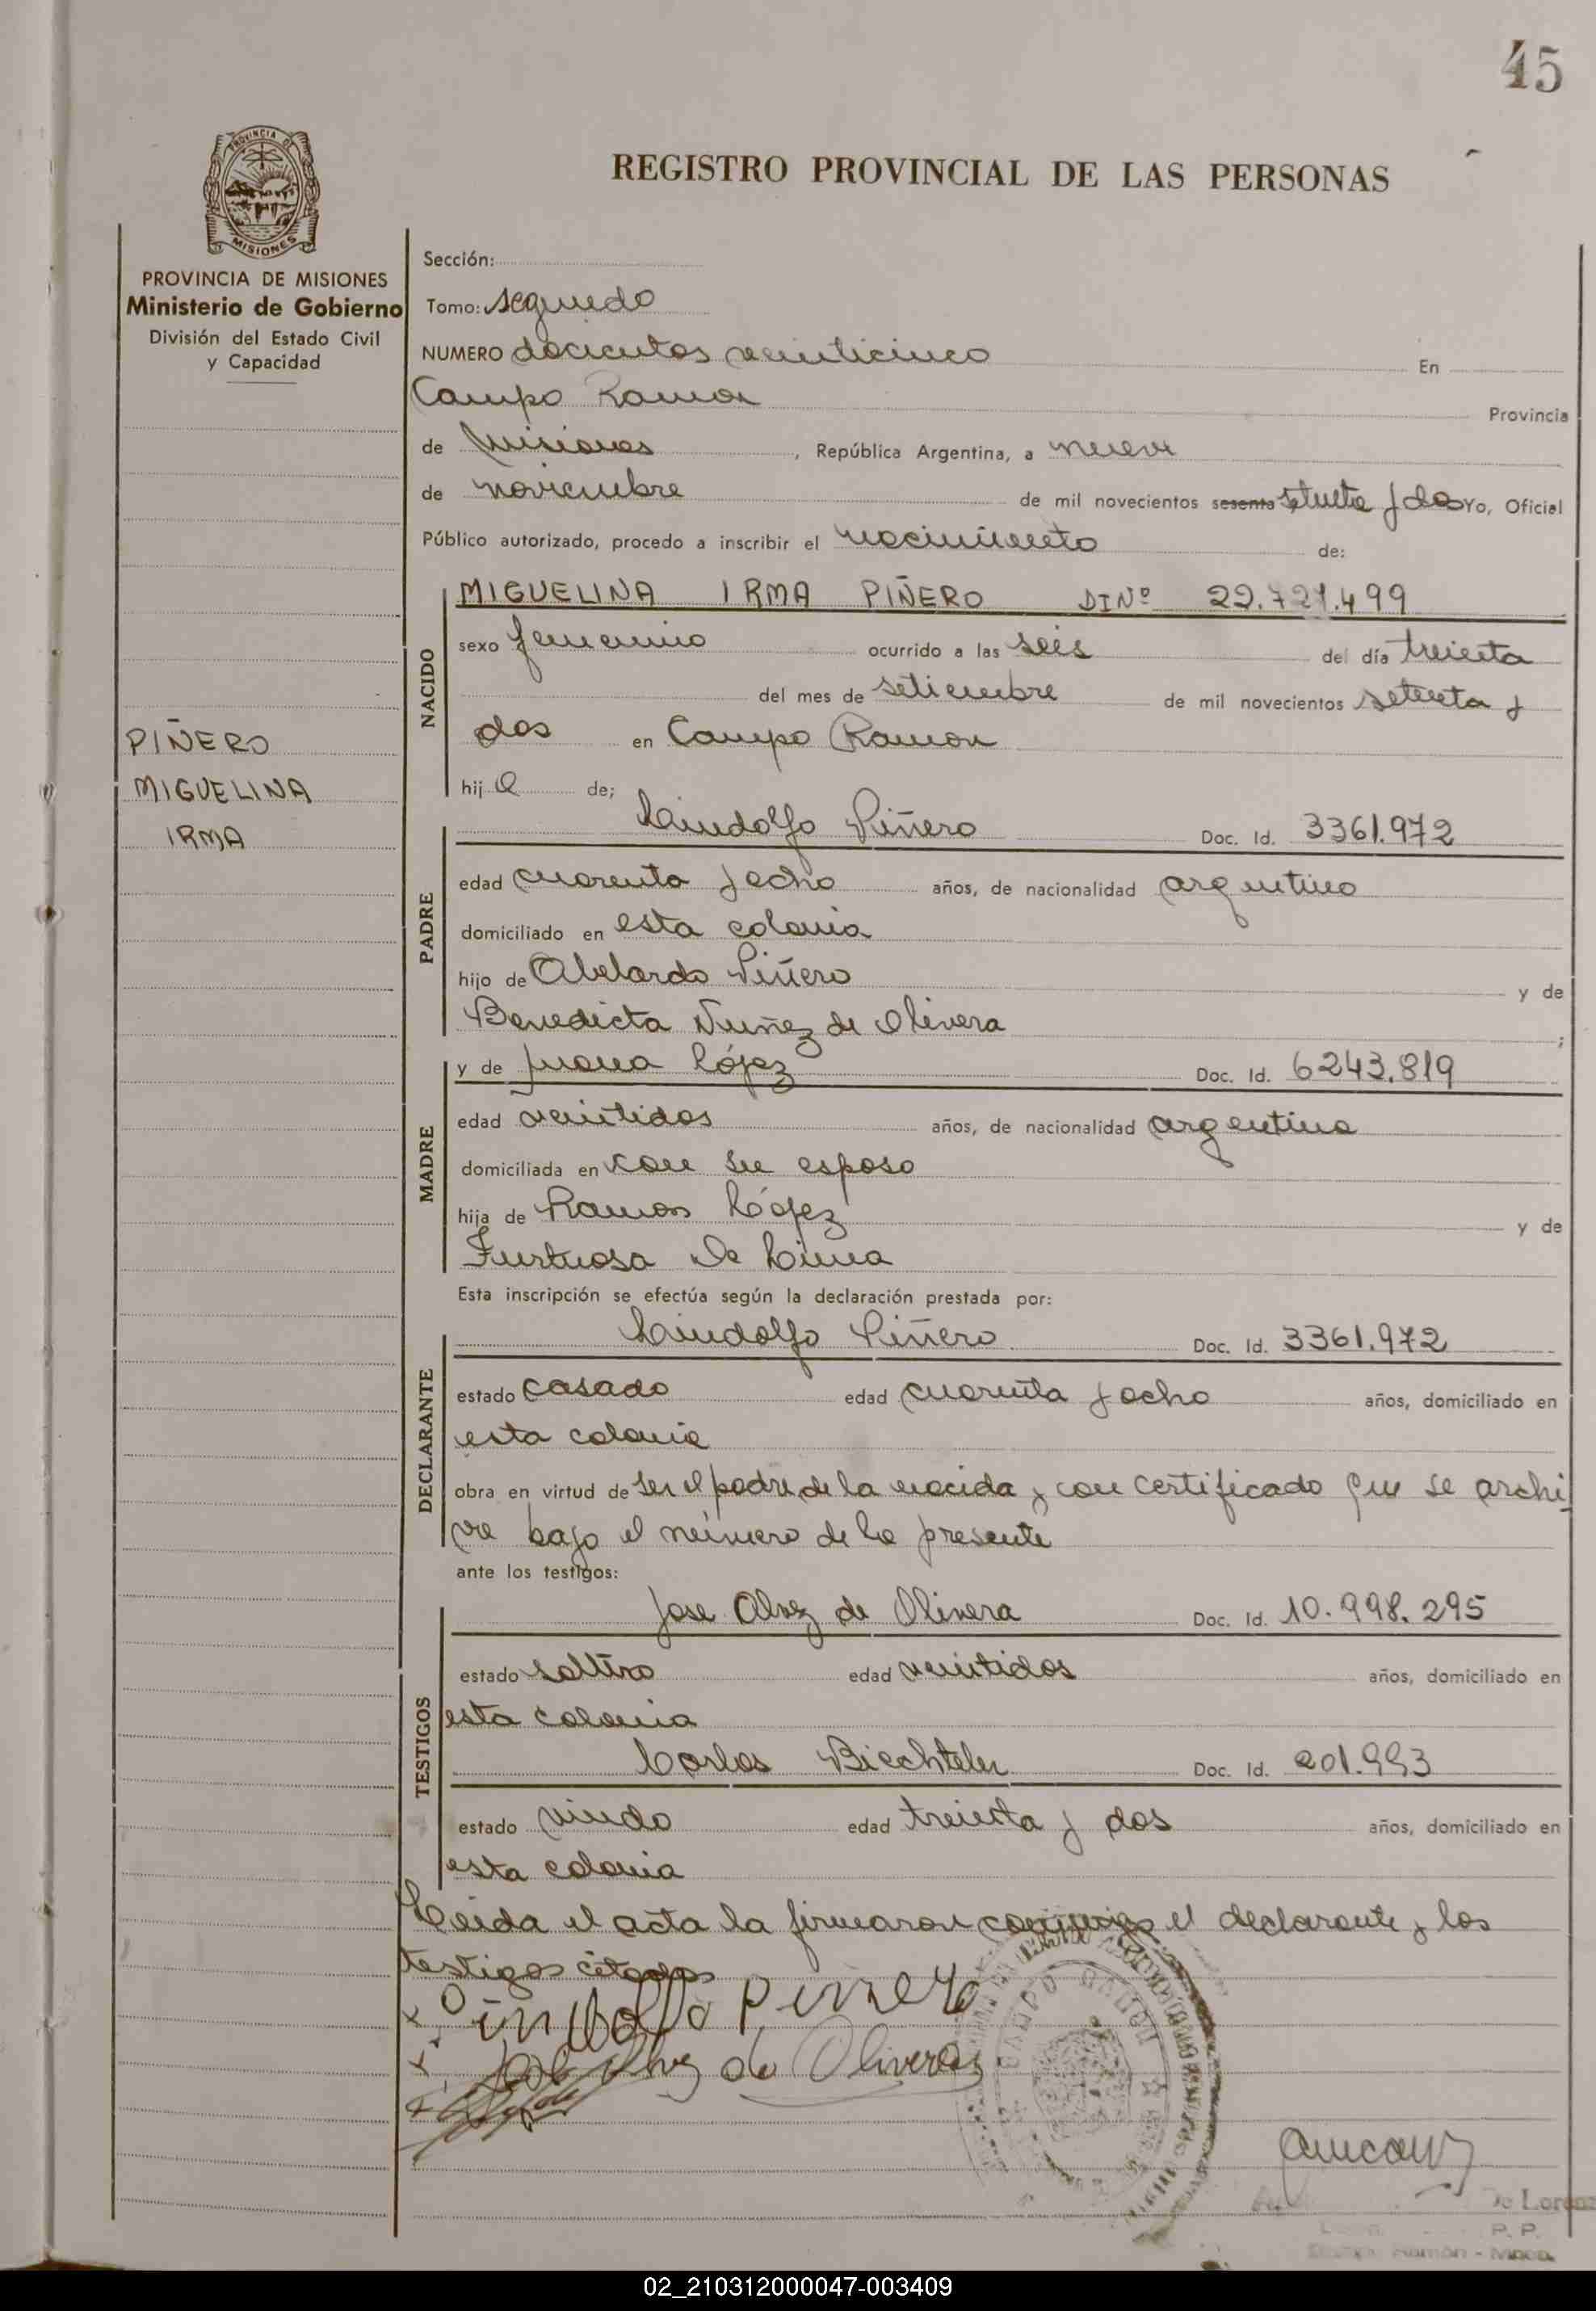 45
PROVINCIA DE
MISIONES
REGISTRO PROVINCIAL DE LAS PERSONAS
PROVINCIA DE MISIONES
Ministerio de Gobierno
División del Estado Civil
y Capacidad
PIÑERO
MIGUELINA
IRMA
Sección:
Tomo: segundo
NUMERO docientos veinticinco En
Campo Ramon Provincia
de Misiones, República Argentina, a nueve
de noviembre de mil novecientos sesenta setenta y dos Yo, Oficial
Público autorizado, procedo a inscribir el nacimiento de:
NACIDO
MIGUELINA IRMA PIÑERO DI Nº 22.721.499
sexo femenino ocurrido a las seis del día treinta
del mes de setiembre de mil novecientos setenta y
dos en Campo Ramon
hija de;
PADRE
Lindolfo Piñero Doc. Id. 3361.972
edad cuarenta y ocho años, de nacionalidad argentino
domiciliado en esta colonia
hijo de Abelardo Piñero y de
Benedicta Nuñez de Olivera ;
MADRE
y de Juana López Doc. Id. 6243.819
edad veintidos años, de nacionalidad argentina
domiciliada en con su esposo
hija de Ramon López y de
Furtuosa De Lima
Esta inscripción se efectúa según la declaración prestada por:
DECLARANTE
Lindolfo Piñero Doc. Id. 3361.972
estado casado edad cuarenta y ocho años, domiciliado en
esta colonia
obra en virtud de ser el padre de la nacida y con certificado que se archi
va bajo el número de la presente
ante los testigos:
TESTIGOS
Jose Alvez de Olivera Doc. Id. 10.998.295
estado soltero edad veintidos años, domiciliado en
esta colonia
Carlos Biechteler Doc. Id. 201.993
estado viudo edad treinta y dos años, domiciliado en
esta colonia
Leida el acta la firmaron conmigo el declarante y los
testigos citados
x Lindolfo Pinnero
x Jose Alvez de Olivera
x
CAMPO RAMON
De Lorenz
P. P.
Ramón - Mnes.
02_210312000047-003409